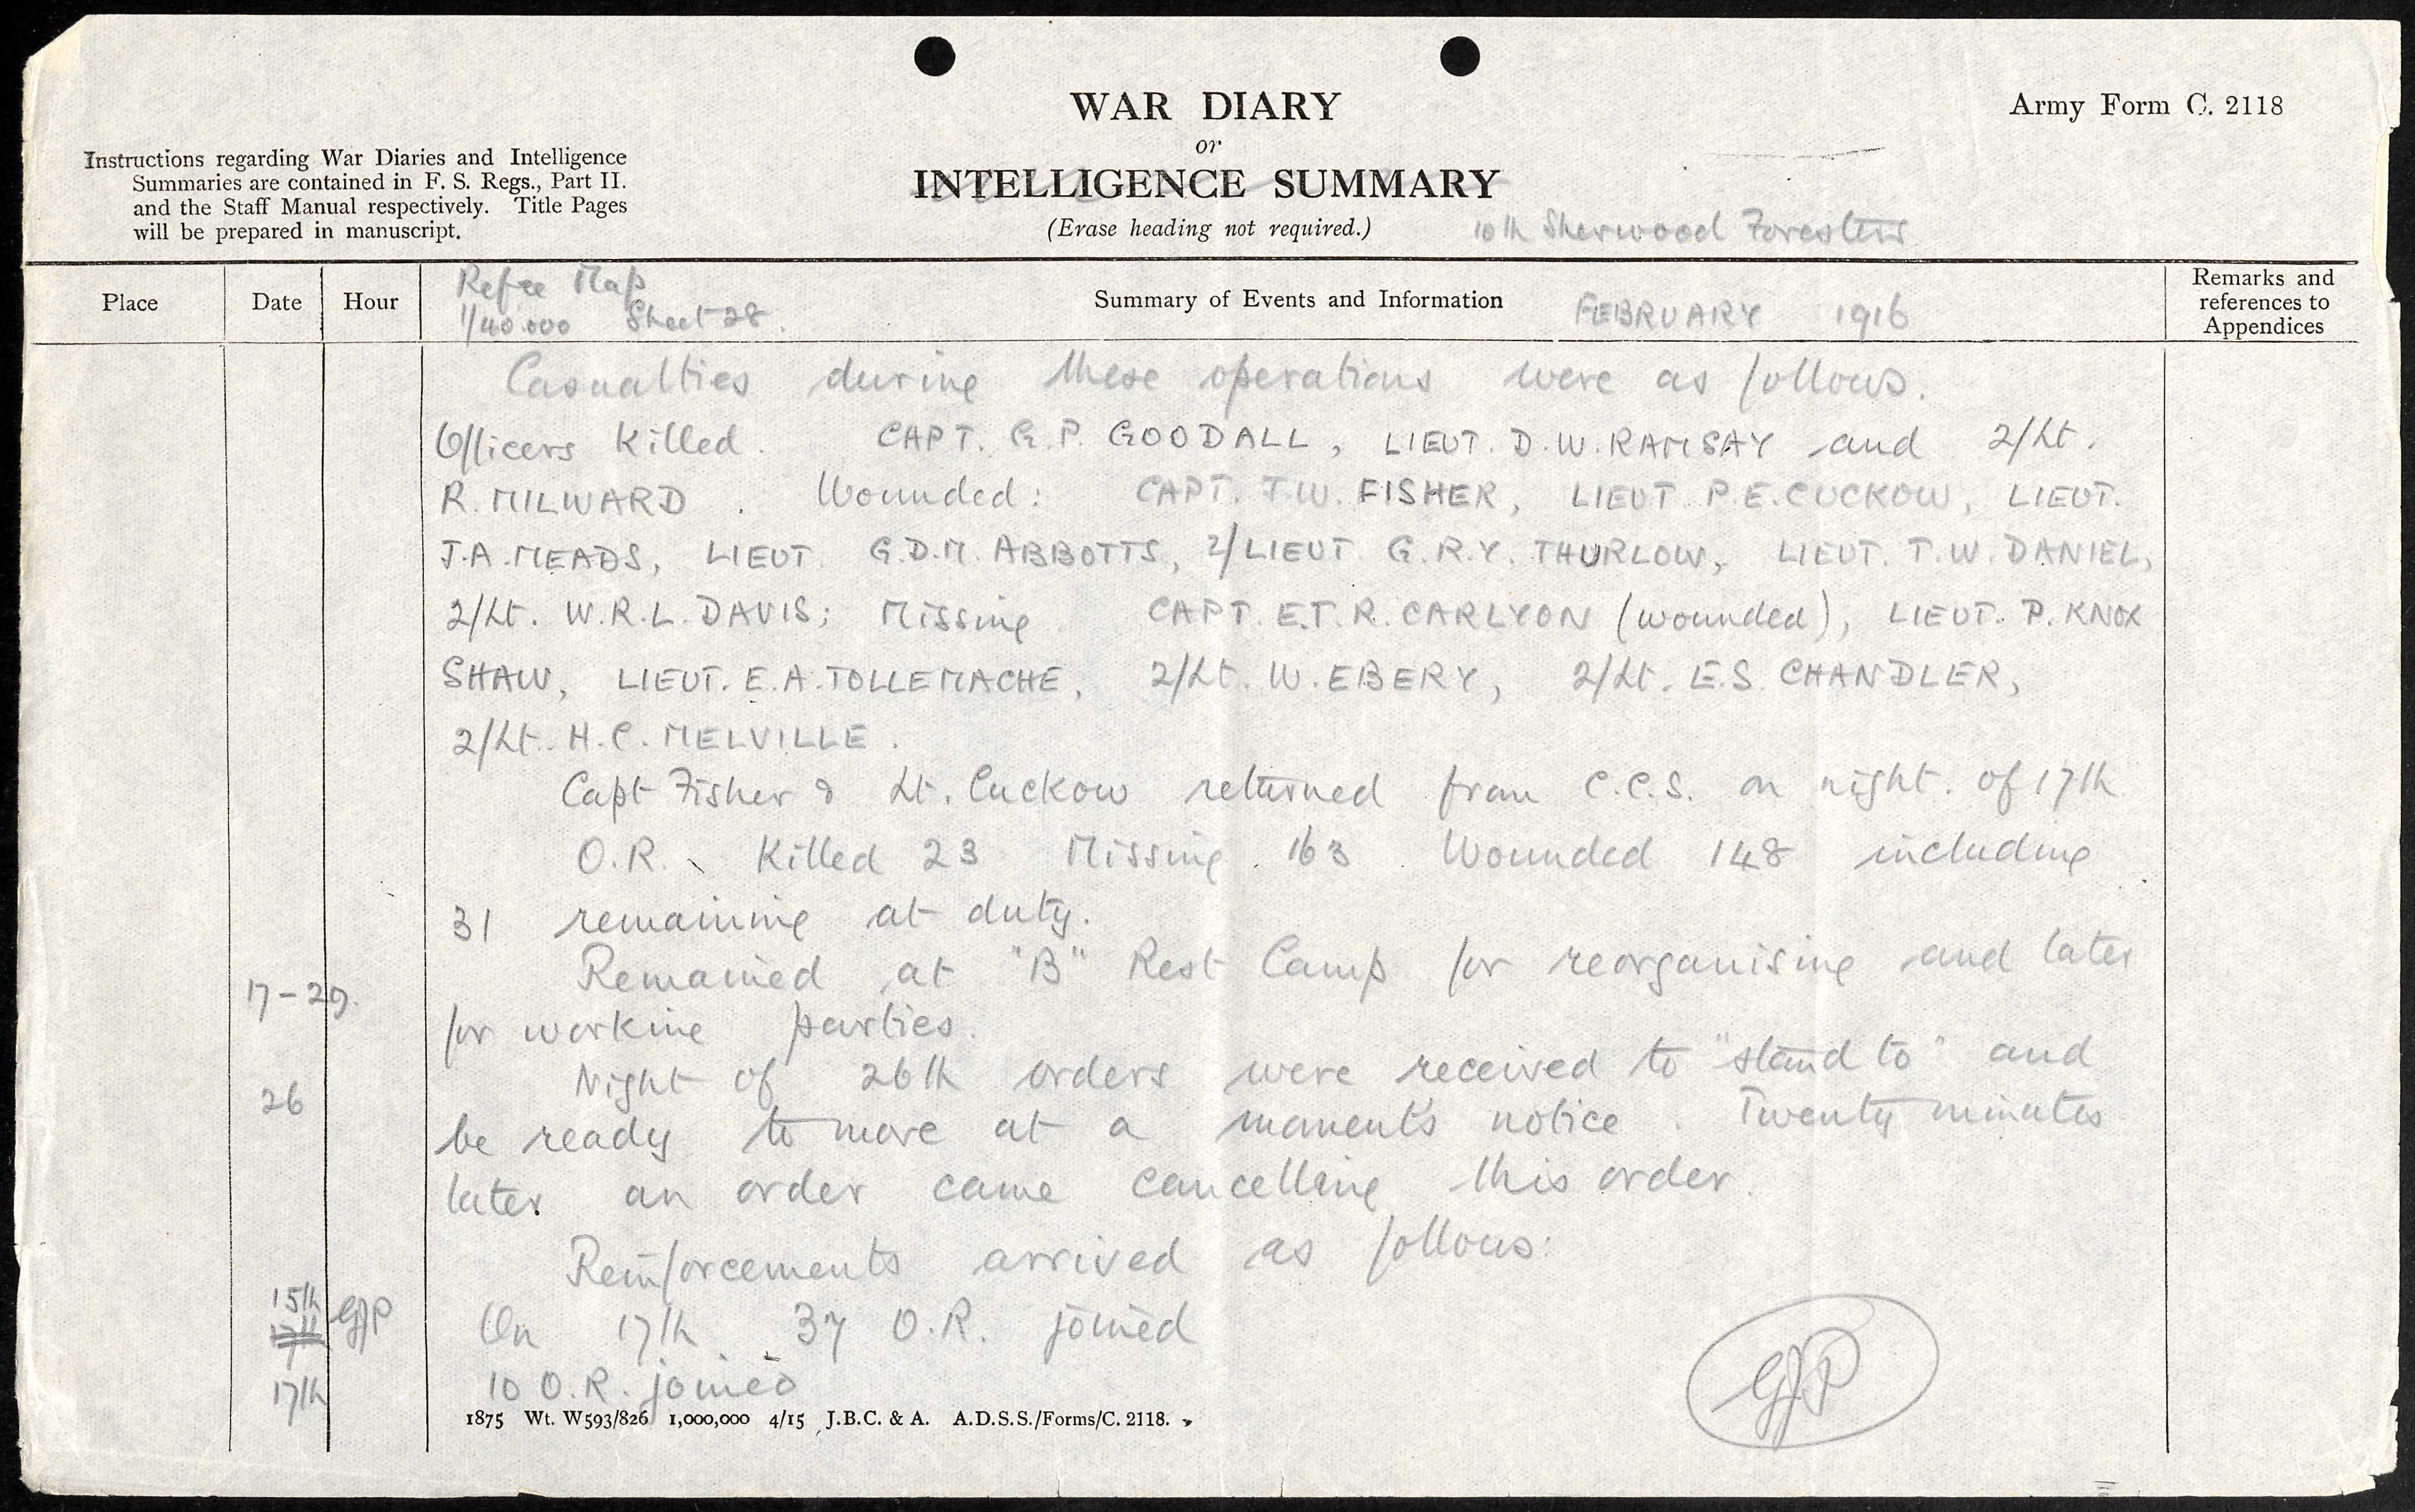 WAR DIARY
or
INTELLIGENCE SUMMARY
(Erase heading not required.)
Army Form C. 2118
Instructions regarding War Diaries and Intelligence
Summaries are contained in F. S. Regs., Part II.
and the Staff Manual respectively. Title Pages
will be prepared in manuscript.
10th Sherwood Foresters
Place
Date
Hour
Refce Map
1/40.000 Sheet 28.
Summary of Events and Information
FEBRUARY 1916
Remarks and
references to
Appendices
Casualties during these operations were as follows.
Officers Killed. CAPT. G.P. GOODALL, LIEUT. D.W. RAMSAY and 2/Lt.
R. MILWARD. Wounded: CAPT. T.W. FISHER, LIEUT P.E. CUCKOW, LIEUT.
J.A. MEADS, LIEUT G.D.M. ABBOTTS, 2/LIEUT G.R.Y. THURLOW, LIEUT. T.W. DANIEL,
2/Lt. W.R.L. DAVIS; Missing CAPT. E.T.R. CARLYON (wounded), LIEUT. P. KNOX
SHAW, LIEUT. E.A. TOLLEMACHE, 2/Lt. W. EBERY, 2/Lt. E.S. CHANDLER,
2/Lt. H.C. MELVILLE.
Capt Fisher & Lt. Cuckow returned from C.C.S. on night of 17th
O.R. Killed 23 Missing 163 Wounded 148 including
31 remaining at duty.
17-29. Remained at "B" Rest Camp for reorganising and later
for working parties.
26 Night of 26th orders were received to "stand to" and
be ready to move at a moment's notice. Twenty minutes
later an order came cancelling this order.
Reinforcements arrived as follows:
15th GJP
17th On 17th 37 O.R. joined
17th 10 O.R. joined
GJP
1875 Wt. W593/826 1,000,000 4/15 J.B.C. & A. A.D.S.S./Forms/C. 2118.